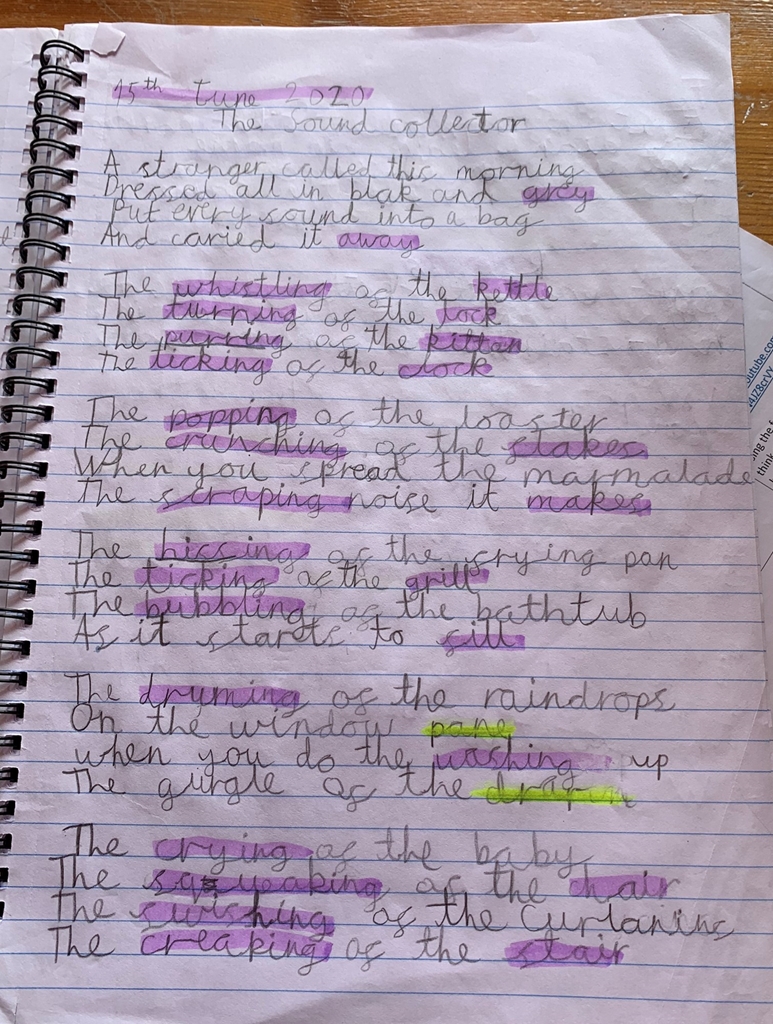 15th tune 2020
The sound collector
A stranger called this morning
Dressed all in blak and grey
Put every sound into a bag
And caried it away
The whistling of the kettle
The turning of the lock
The purring of the kitten
The ticking of the clock
The popping of the toaster
The crunching of the flakes
When you spread the marmalade
The scraping noise it makes
The hissing of the frying pan
The ticking of the grill
The bubbling of the bathtub
As it starts to fill
The druming of the raindrops
On the window pane
when you do the washing up
The gurgle of the
The crying of the baby
The squeaking of the chair
The swishing of the
The creaking of the stair
outube.com
ing the
think